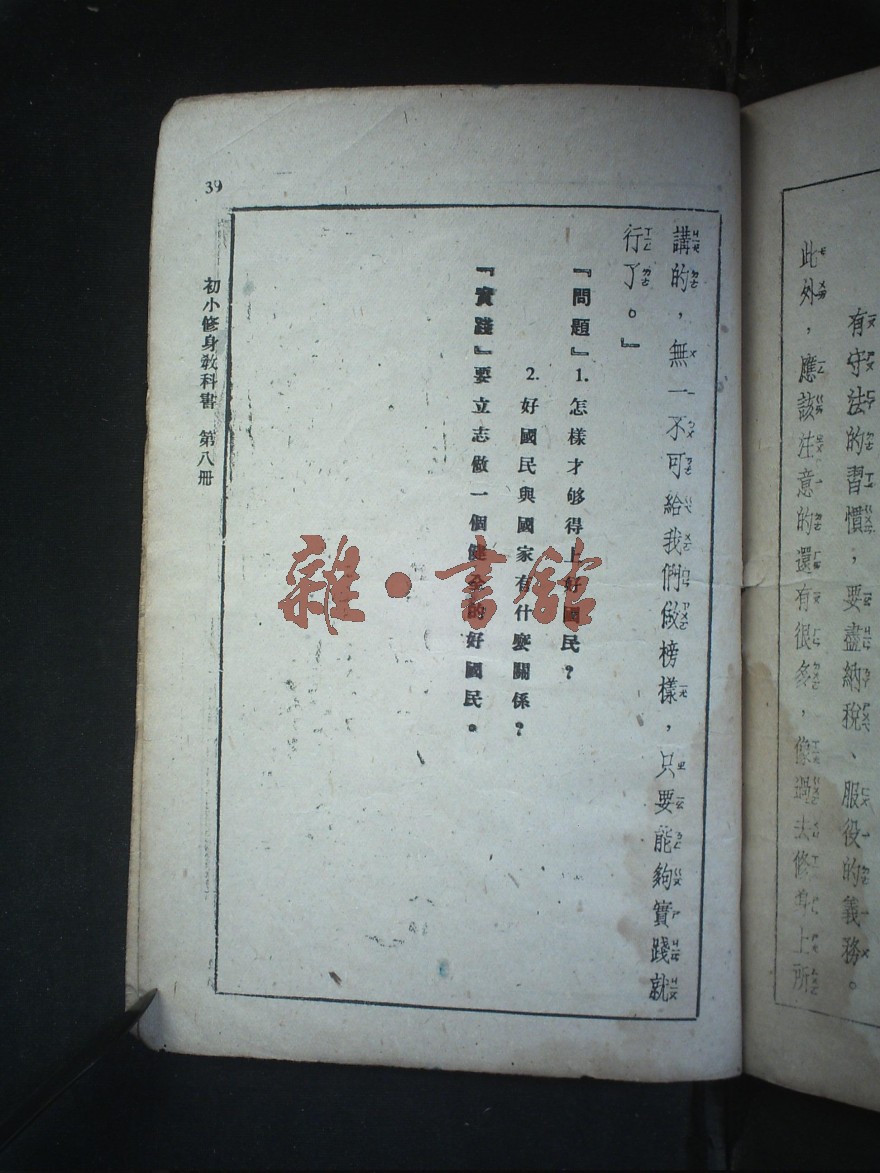 有守法的習慣，要盡納稅、服役的義務。
此外，應該注意的還有很多，像過去修身上所
講的，無一不可給我們做榜樣，只要能夠實踐就
行了。』
『問題』1.怎樣才够得上好國民？
2.好國民與國家有什麼關係？
『實踐』要立志做一個健全的好國民。
初小修身教科書 第八册
39
雜·書館